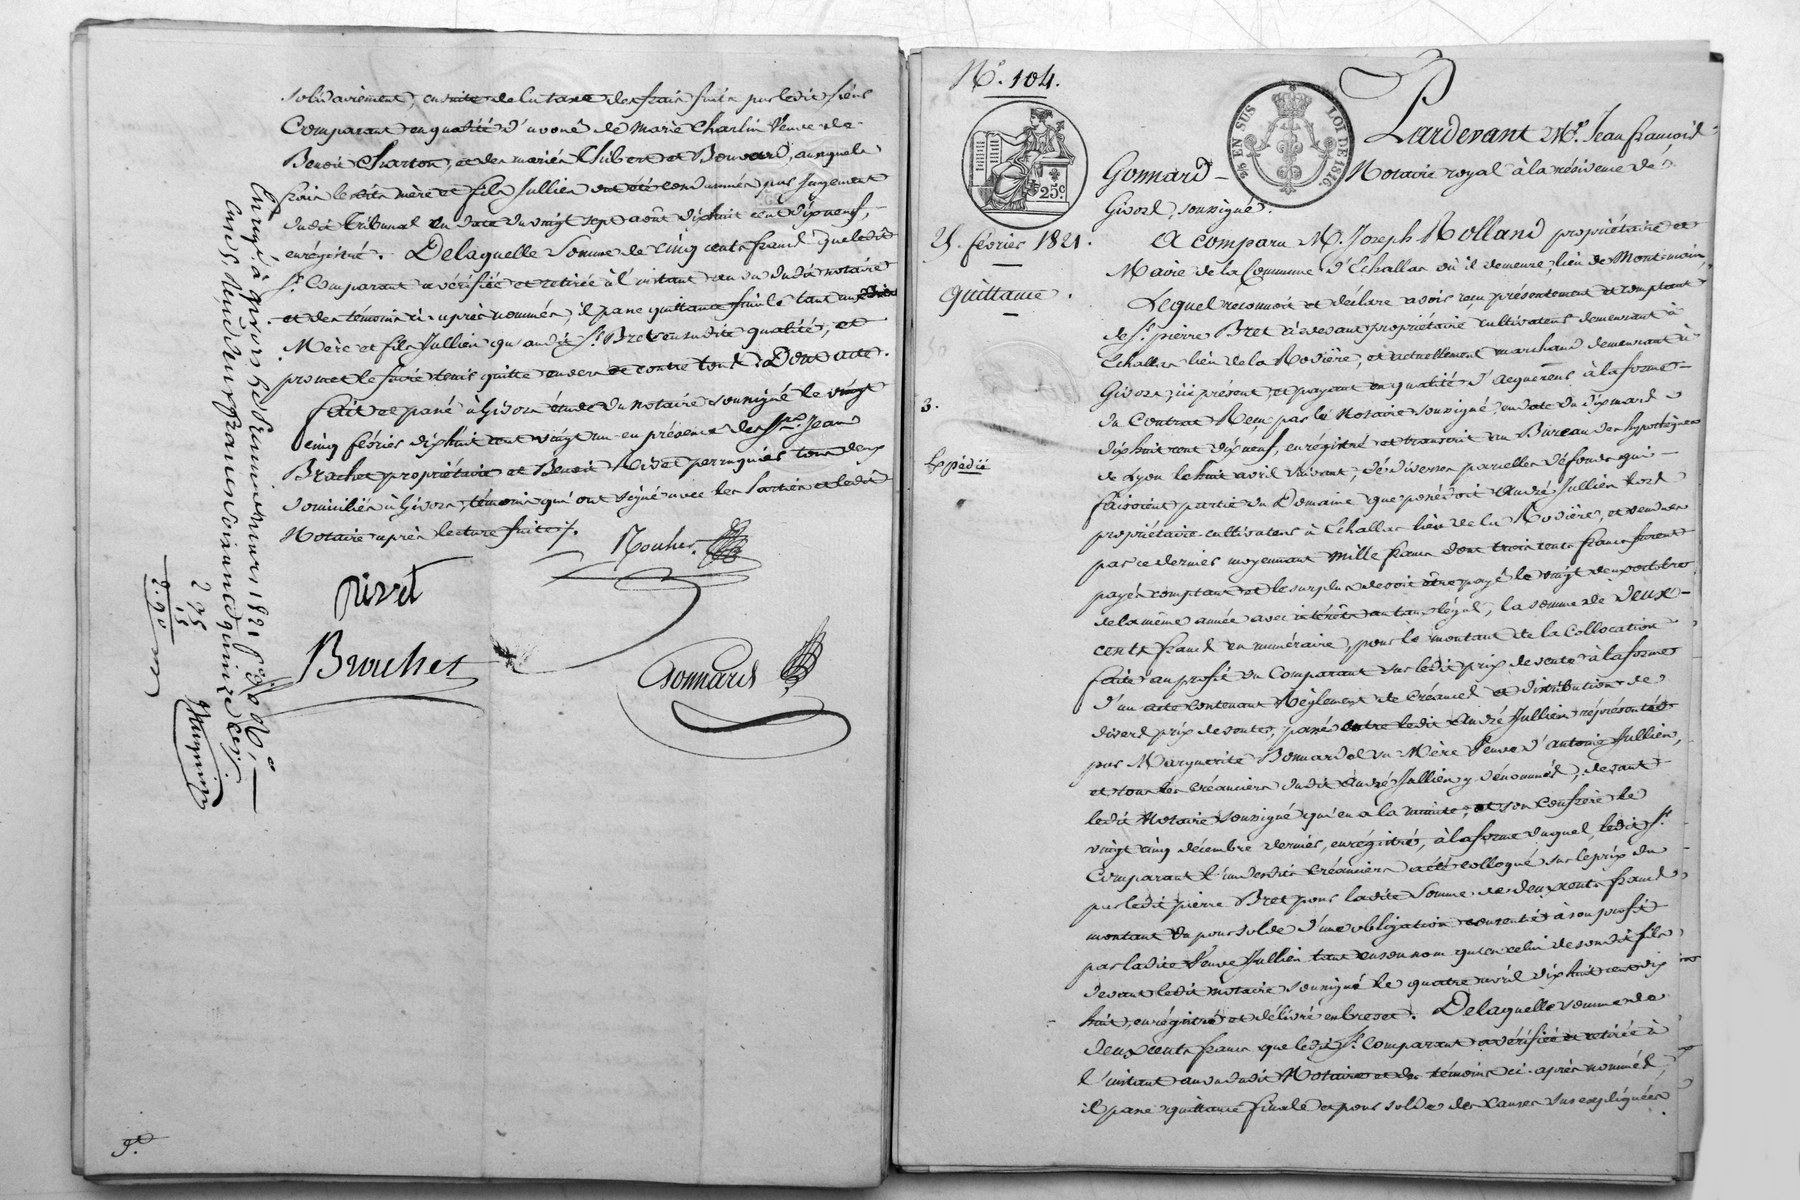 solidairement, ensuite de la taxe des frais faite par ledit sieur
Comparant en qualité d'avoué de Marie Charlin Veuve de
Benoit Charton, et des mariés Chibert et Bouvard, auxquels
frais lesdits mère et fils Jullien ont été condamnés par Jugement
dudit Tribunal en date du vingt sept août dix huit cent dix neuf,
enrégistré. De laquelle somme de cinq cents francs que ledit
Sr. Comparant a vérifiée et retirée à l'instant au vu dudit notaire
et des témoins ci-après nommés, il passe quittance finale tant aux dits
Mère et fils Jullien qu'audit Sr. Bret en sadite qualité, et
promet le faire tenir quitte envers et contre tous. Dont acte.
fait et passé à Givors étude du notaire soussigné le vingt
cinq février dix huit cent vingt un en présence des Srs. Jean
Brochet propriétaire et Benoit Rivet perruquier tous deux
domiciliés à Givors, témoins qui ont signé avec les parties et ledit
Notaire après lecture faite /.
Rivet
Brochet
Gonnard
Enregé. à Givors le deux mars 1821
2 75
25
9e.
No. 104.
EN SUS
LOI DE 1816.
25c
Pardevant Me. Jean françois
Gonnard Notaire royal à la résidence de
Givors, soussigné.
25. février 1821.
A comparu M. Joseph Rolland propriétaire et
Maire de la Commune d'Echallas où il demeure, lieu de Montemain,
Quittance.
Lequel reconnoit et déclare avoir reçu présentement et comptant
de Sr. pierre Bret ci-devant propriétaire cultivateur demeurant à
Echallas lieu de la Rodière, et actuellement marchand demeurant à
Givors, ici présent, et payant en qualité d'acquéreur à la forme
3.
du Contrat Reçu par le Notaire soussigné, en date du dix mars
dix huit cent dix neuf, enrégistré et transcrit au Bureau des hypothèques
Expédié
de Lyon le huit avril suivant, de diverses parcelles de fonds qui
faisoient partie du Domaine que possédoit André Jullien lors
propriétaire cultivateur à Echallas lieu de la Rodière, et vendues
par ce dernier moyennant mille francs dont trois cents francs furent
payés comptant et le surplus devoit être payé le vingt deux octobre
de la même année avec intérêts au taux légal, la somme de deux
cents francs en numéraire, pour le montant de la collocation
faite au profit du Comparant sur ledit prix de vente à la forme
d'un acte contenant Règlement de Créances et distribution de
divers prix de ventes, passé entre ledit André Jullien réprésenté
par Marguerite Bonnard sa Mère Veuve d'antoine Jullien,
et tous les Créanciers dudit André Jullien y dénommés, devant
ledit Notaire soussigné qui en a la minute, et son confrère le
vingt cinq décembre dernier, enrégistré, à la forme duquel, ledit Sr.
Comparant l'un desdits Créanciers a été colloqué sur le prix dû
par ledit pierre Bret pour ladite somme de deux cents francs
montant dû pour solde d'une obligation consentie à son profit
par ladite Veuve Jullien tant en son nom qu'en celui de son dit fils
devant ledit notaire soussigné le quatre avril dix huit cent dix
huit, enrégistré et délivré en brevet. De laquelle somme de
deux cents francs que ledit Sr. Comparant a vérifiée et retirée à
l'instant au vu dudit Notaire et des témoins ci-après nommés,
il passe quittance finale et pour solde des causes sus expliquées